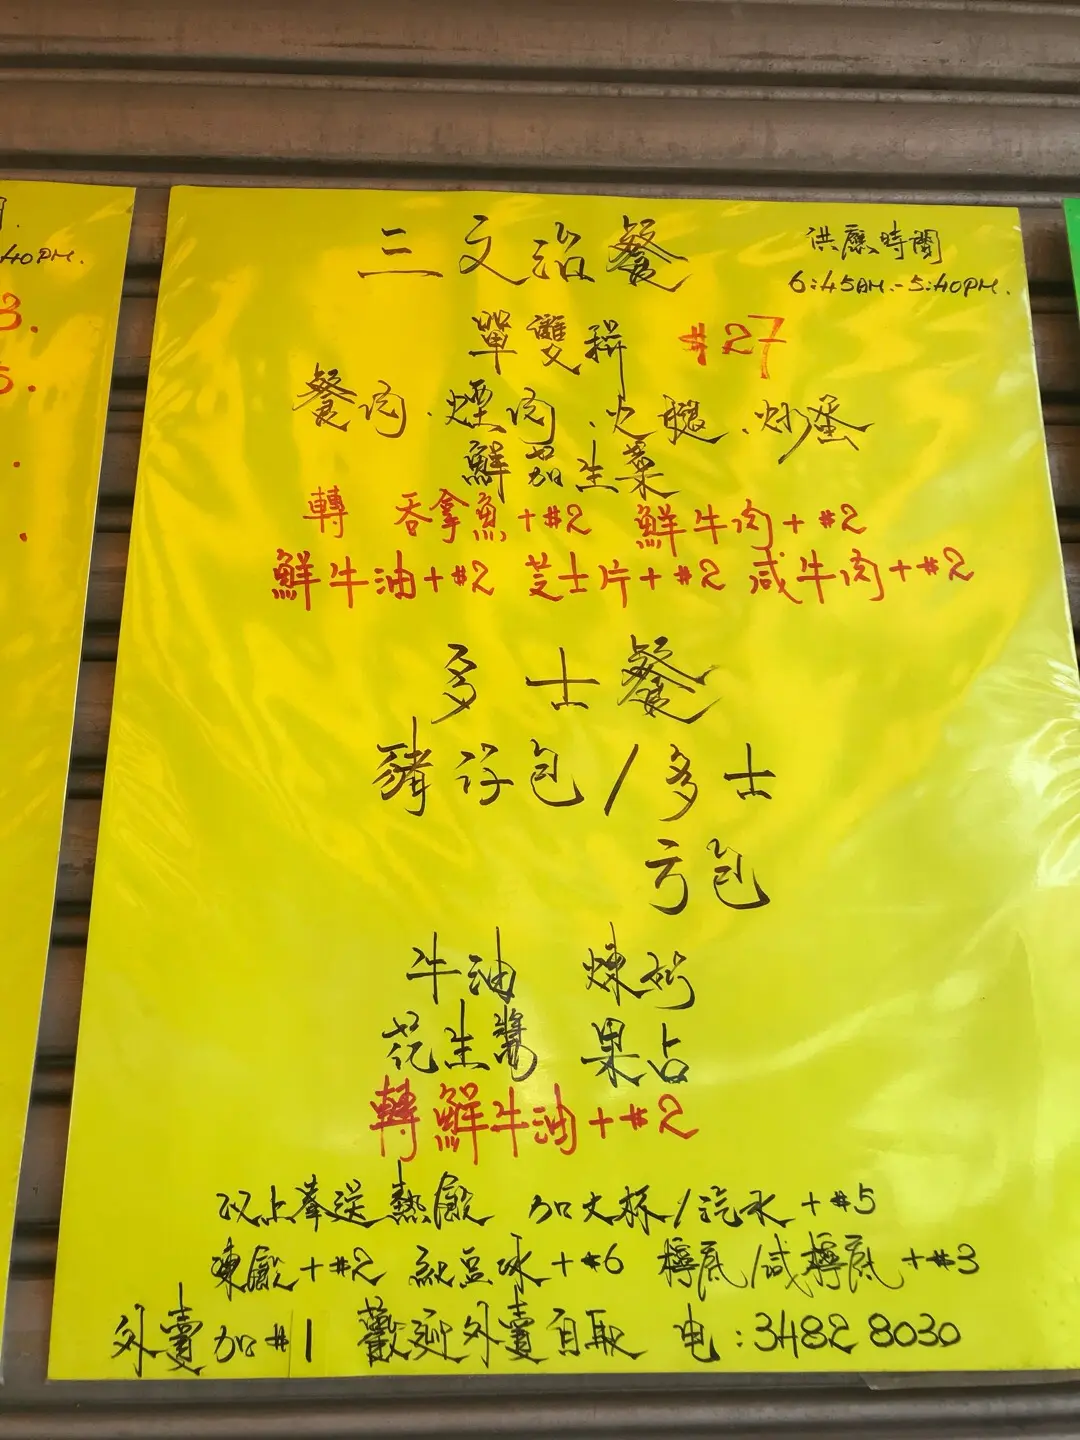 三文治餐
供應時間
6:45AM.-5:40PM.
單雙拼 #27
餐肉、煙肉、火腿、炒蛋
鮮茄生菜
轉 吞拿魚+#2 鮮牛肉+#2
鮮牛油+#2 芝士片+#2 咸牛肉+#2
多士餐
豬仔包/多士
方包
牛油 煉奶
花生醬 果占
轉鮮牛油+#2
以上奉送熱飲 加大杯/汽水+#5
凍飲+#2 紅豆冰+#6 檸底/咸檸底+#3
外賣加#1 歡迎外賣自取 电:3482 8030
:40PM.
3.
5.